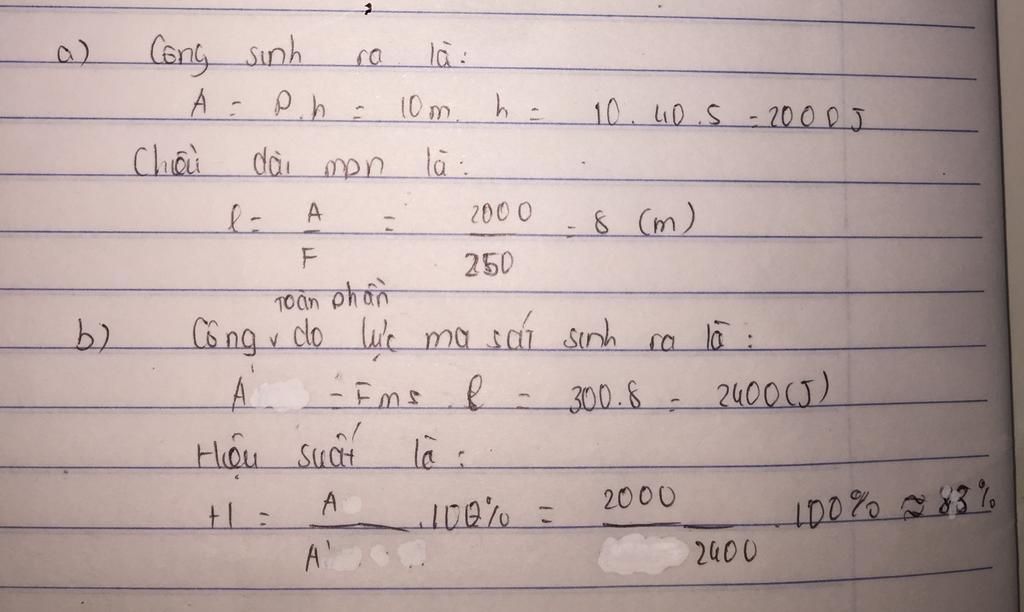 a) Công sinh ra là:
A = P.h = 10m. h = 10. 40.5 = 2000J
Chiều dài mpn là:
l = A/F = 2000/250 = 8 (m)
toàn phần
b) Công v do lực ma sát sinh ra là:
A' = Fms . l = 300.8 = 2400(J)
Hiệu suất là:
H = A/A' .100% = 2000/2400 .100% ≈ 83%